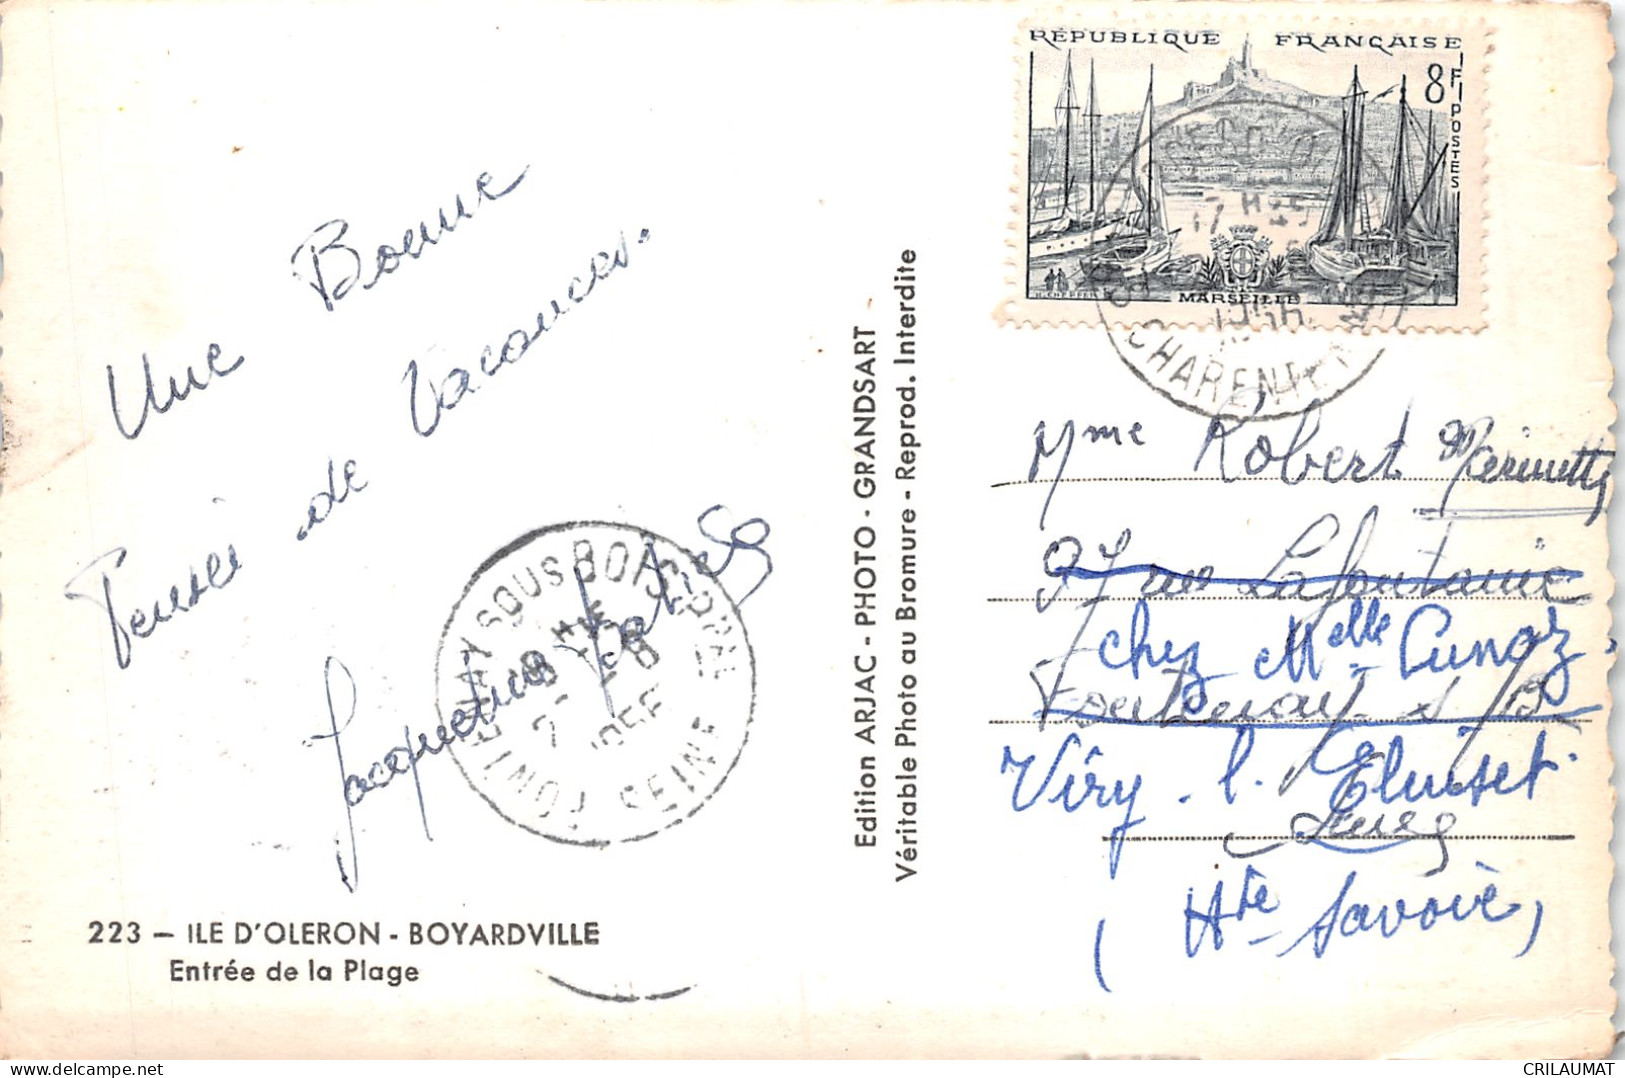 RÉPUBLIQUE FRANÇAISE
8F POSTES
MARSEILLE
17 H25
CHARENTE
Une Bonne
Pensée de Vacances.
Jacqueline
FONTENAY SOUS BOIS PPAL
SEINE
Edition ARJAC - PHOTO - GRANDSART
Véritable Photo au Bromure - Reprod. Interdite
Mme Robert
97 rue Lafontaine
chez Melle Cunaz,
Fontenay s/B
Viry. l. Eluiset.
(Hte Savoie)
223 — ILE D'OLERON - BOYARDVILLE
Entrée de la Plage
CRILAUMAT